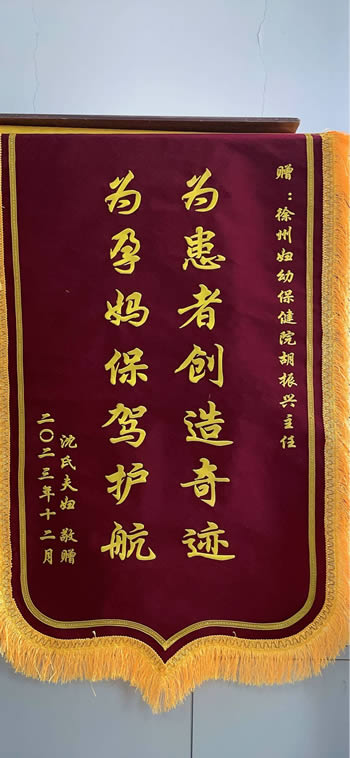 赠：徐州妇幼保健院胡振兴主任
为患者创造奇迹
为孕妈保驾护航
沈氏夫妇 敬赠
二〇二三年十二月